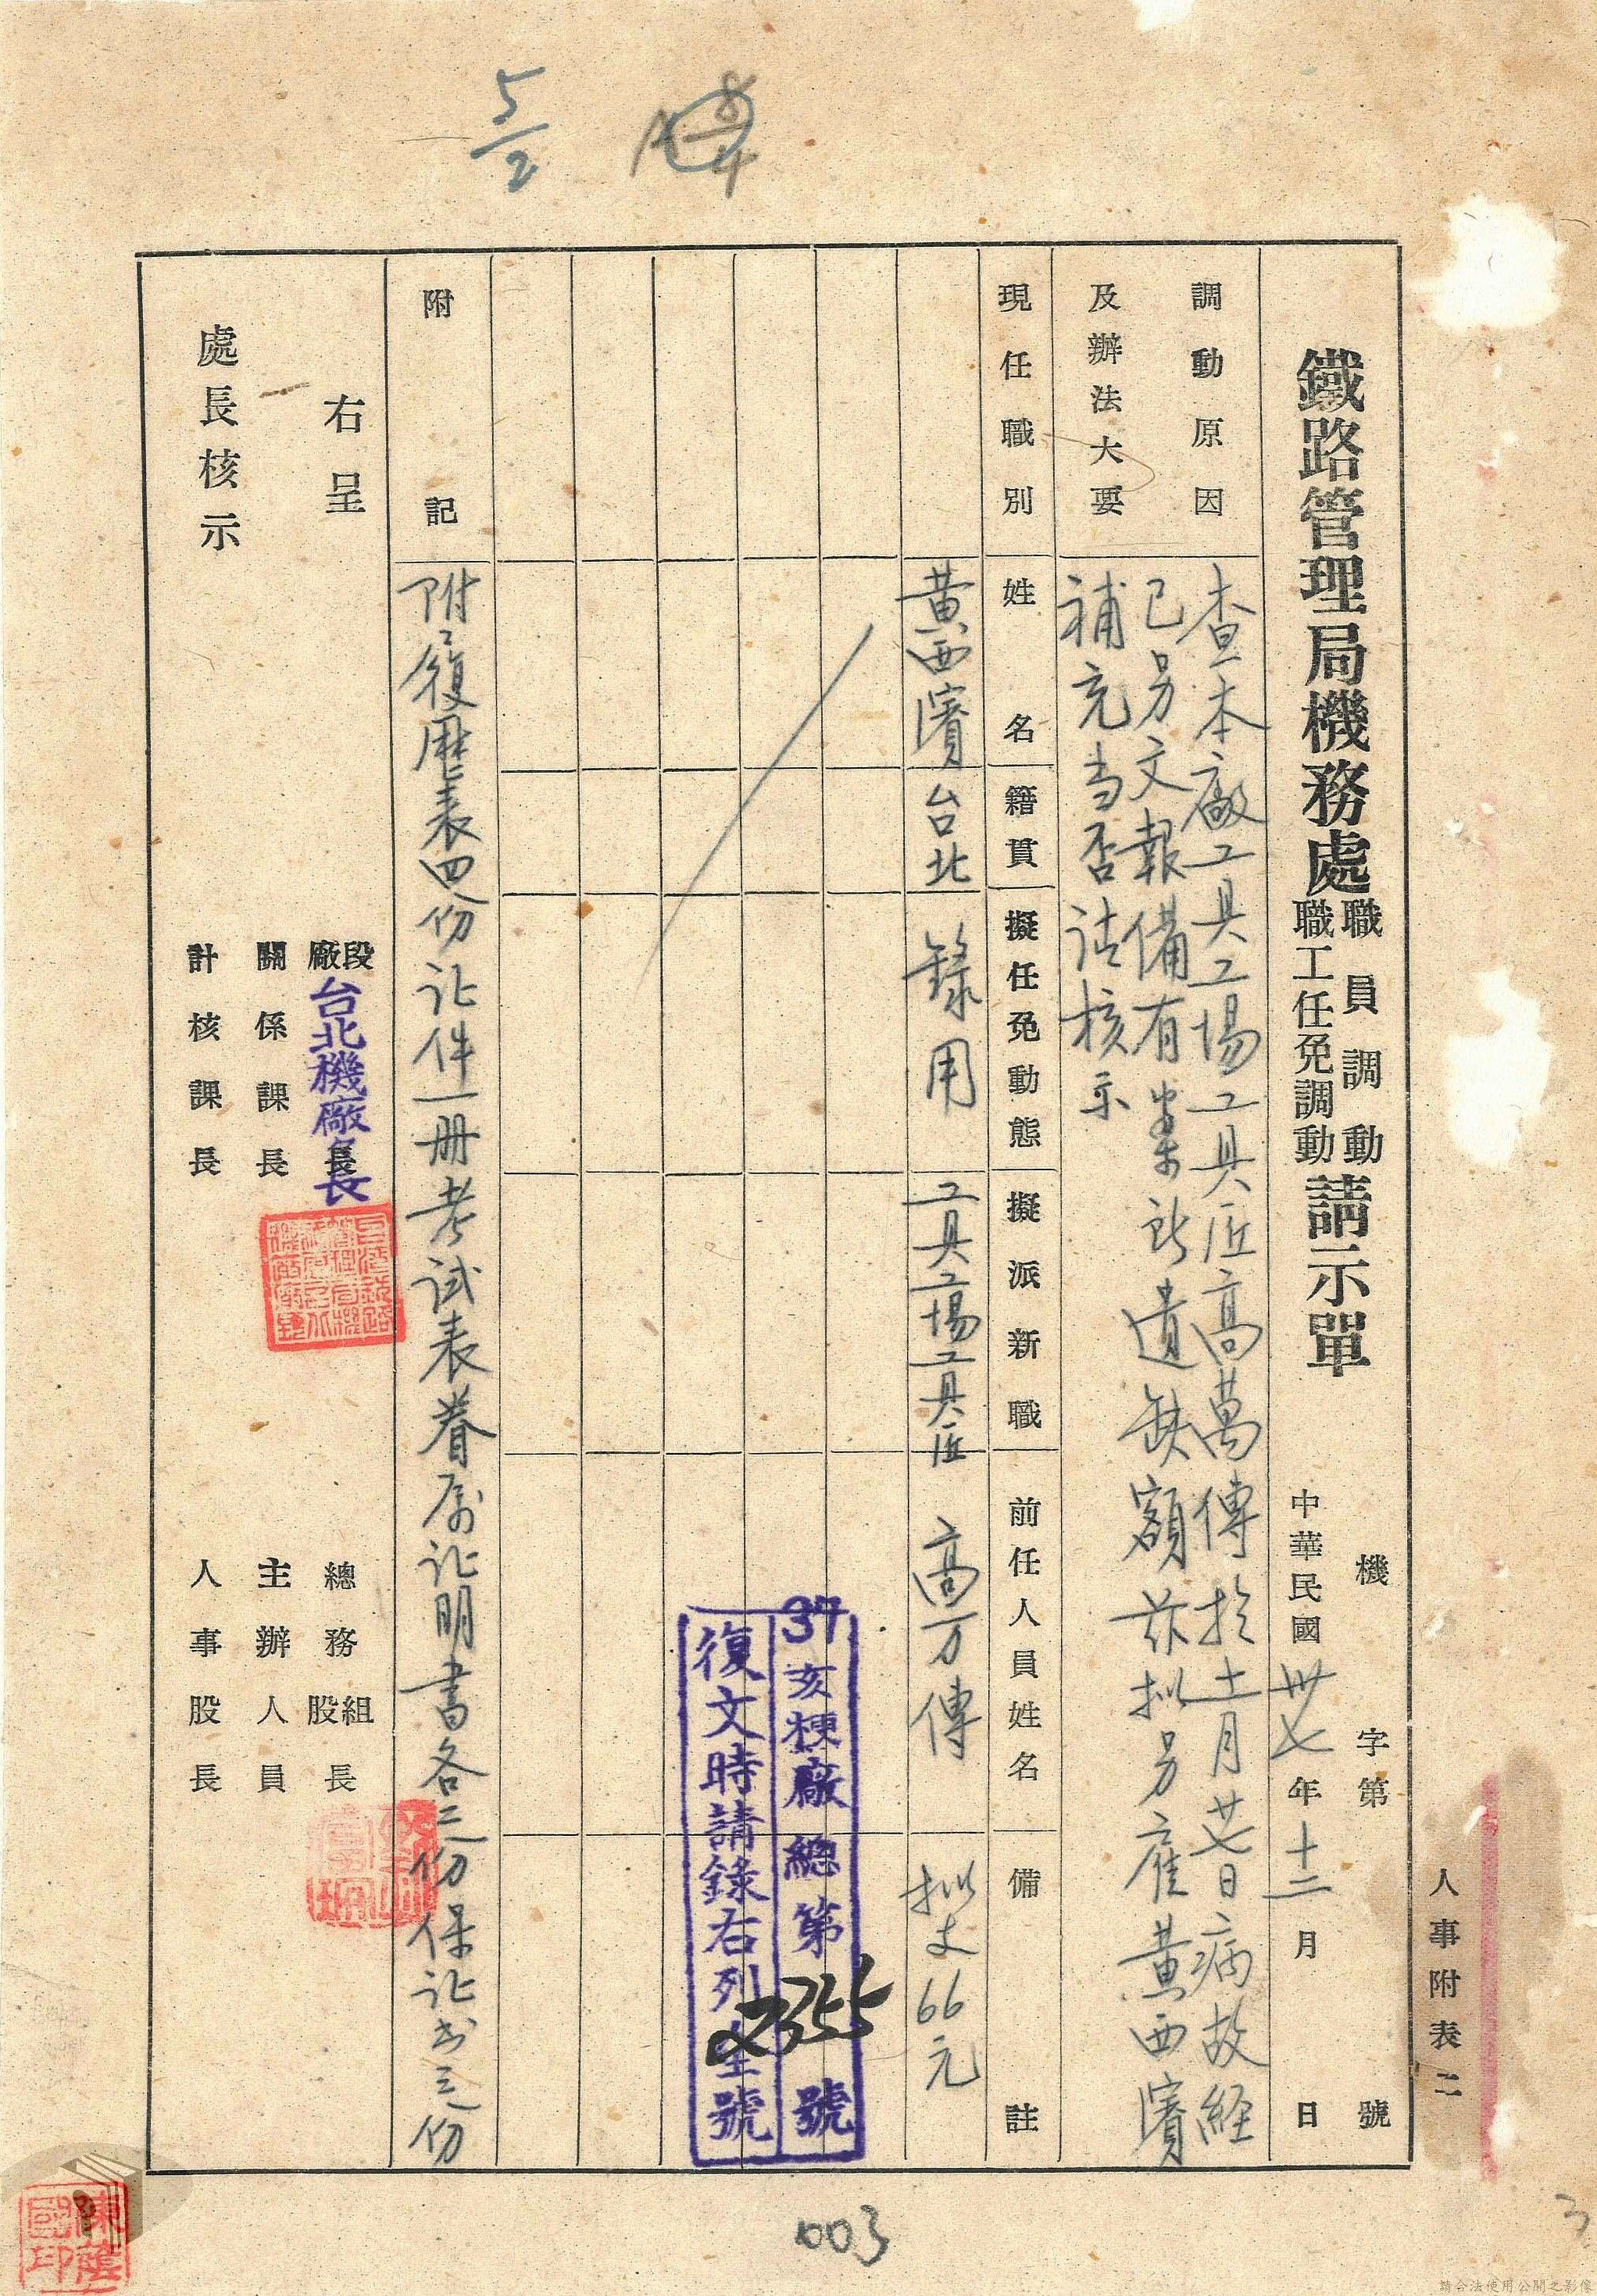 人事附表二
鐵路管理局機務處
職員調動
職工任免調動
請示單
機 字第 號
中華民國卅七年十二月 日
調動原因
及辦法大要
查本廠工具工場工具匠高萬傳於十一月廿七日病故経
已另文報備有案所遺缺額茲拟另雇黃西濱
補充当否請核示
現任職別
姓名
籍貫
擬任免動態
擬派新職
前任人員姓名
備註
黃西濱
台北
錄用
工具工場工具匠
高万傳
拟支66元
37亥梗廠總第2355號
復文時請錄右列全號
附記
附履歷表四份证件一册考试表眷属证明書各二份保证书三份
右呈
處長核示
段
廠
台北機廠長
長
關係課長
計核課長
總務
組
股
長
主辦人員
人事股長
5/2
8/4
003
3
請合法使用公開之影像